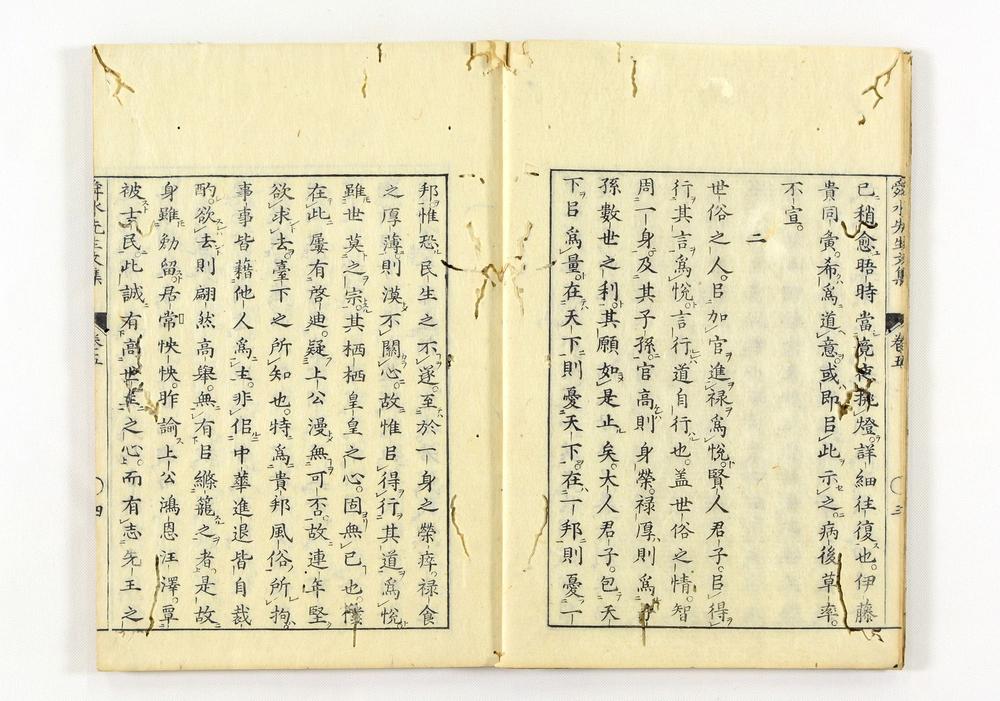 舜水先生文集 卷五 三
已稍愈晤時當竟夜挑燈詳細往復也。伊藤
貴同寅。希爲道意。或即㠯此示之。病後草率。
不宣。
二
世俗之人。㠯加官進祿爲悅。賢人君子。㠯得
行其言爲悅。言行道自行也。盖世俗之情。智
周一身。及其子孫。官高則身榮。祿厚則爲子
孫數世之利。其願如是止矣。大人君子。包天
下㠯爲量。在天下則憂天下。在一邦則憂一
邦。惟恐民生之不遂。至於一身之榮瘁。祿食
之厚薄。則漠不關心。故惟㠯得行其道爲悅
雖世莫之宗。其栖栖皇皇之心。固無已也。僕
在此屢有啓迪。疑上公漫無可否。故連年堅
欲求去。臺下之所知也。特爲貴邦風俗所拘
事事皆藉他人爲主。非佀中華進退皆自裁
酌。欲去則翩然高舉。無有㠯縧籠之者。是故
身雖勉留。居常怏怏。昨諭上公鴻恩汪澤。覃
被士民。此誠有高世之心。而有志先王之
舜水先生文集 卷五 四